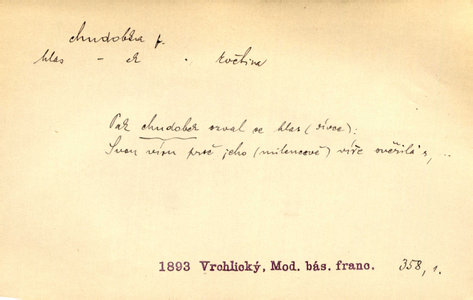 chudobka f.
hlas - ek . květina
Pak chudobek ozval se hlas (dívce):
Svou víru proč jeho (milencově) víře svěřila's, ..
1893 Vrchlický, Mod. bás. franc. 358,1.